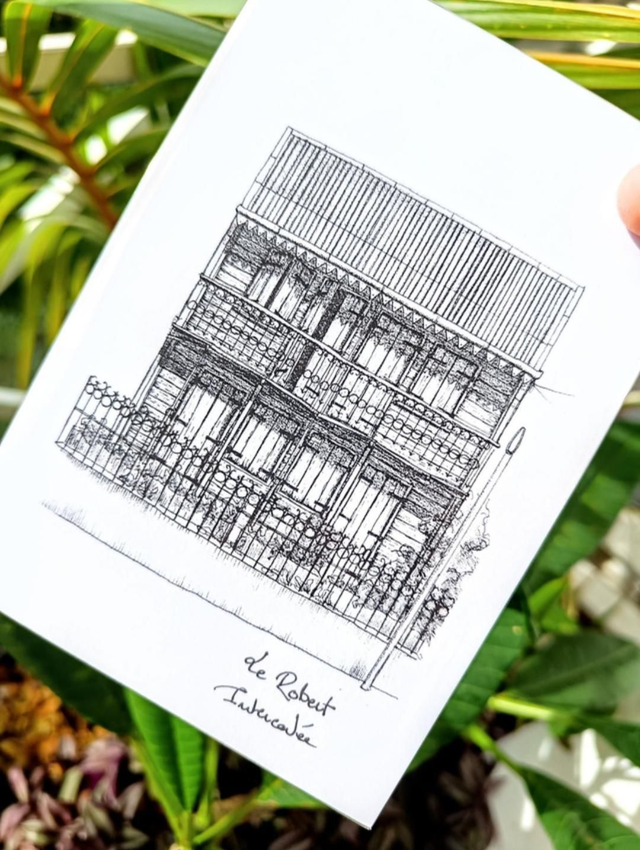 de Robert
Intercalée